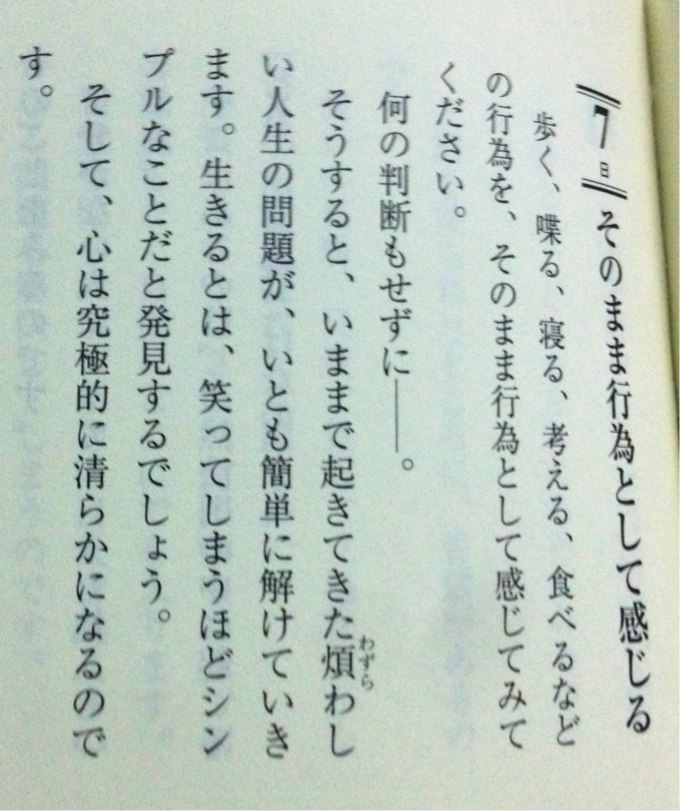 7日 そのまま行為として感じる
歩く、喋る、寝る、考える、食べるなど
の行為を、そのまま行為として感じてみて
ください。
何の判断もせずに――。
そうすると、いままで起きてきた煩わし
わずら
い人生の問題が、いとも簡単に解けていき
ます。生きるとは、笑ってしまうほどシン
プルなことだと発見するでしょう。
そして、心は究極的に清らかになるので
す。